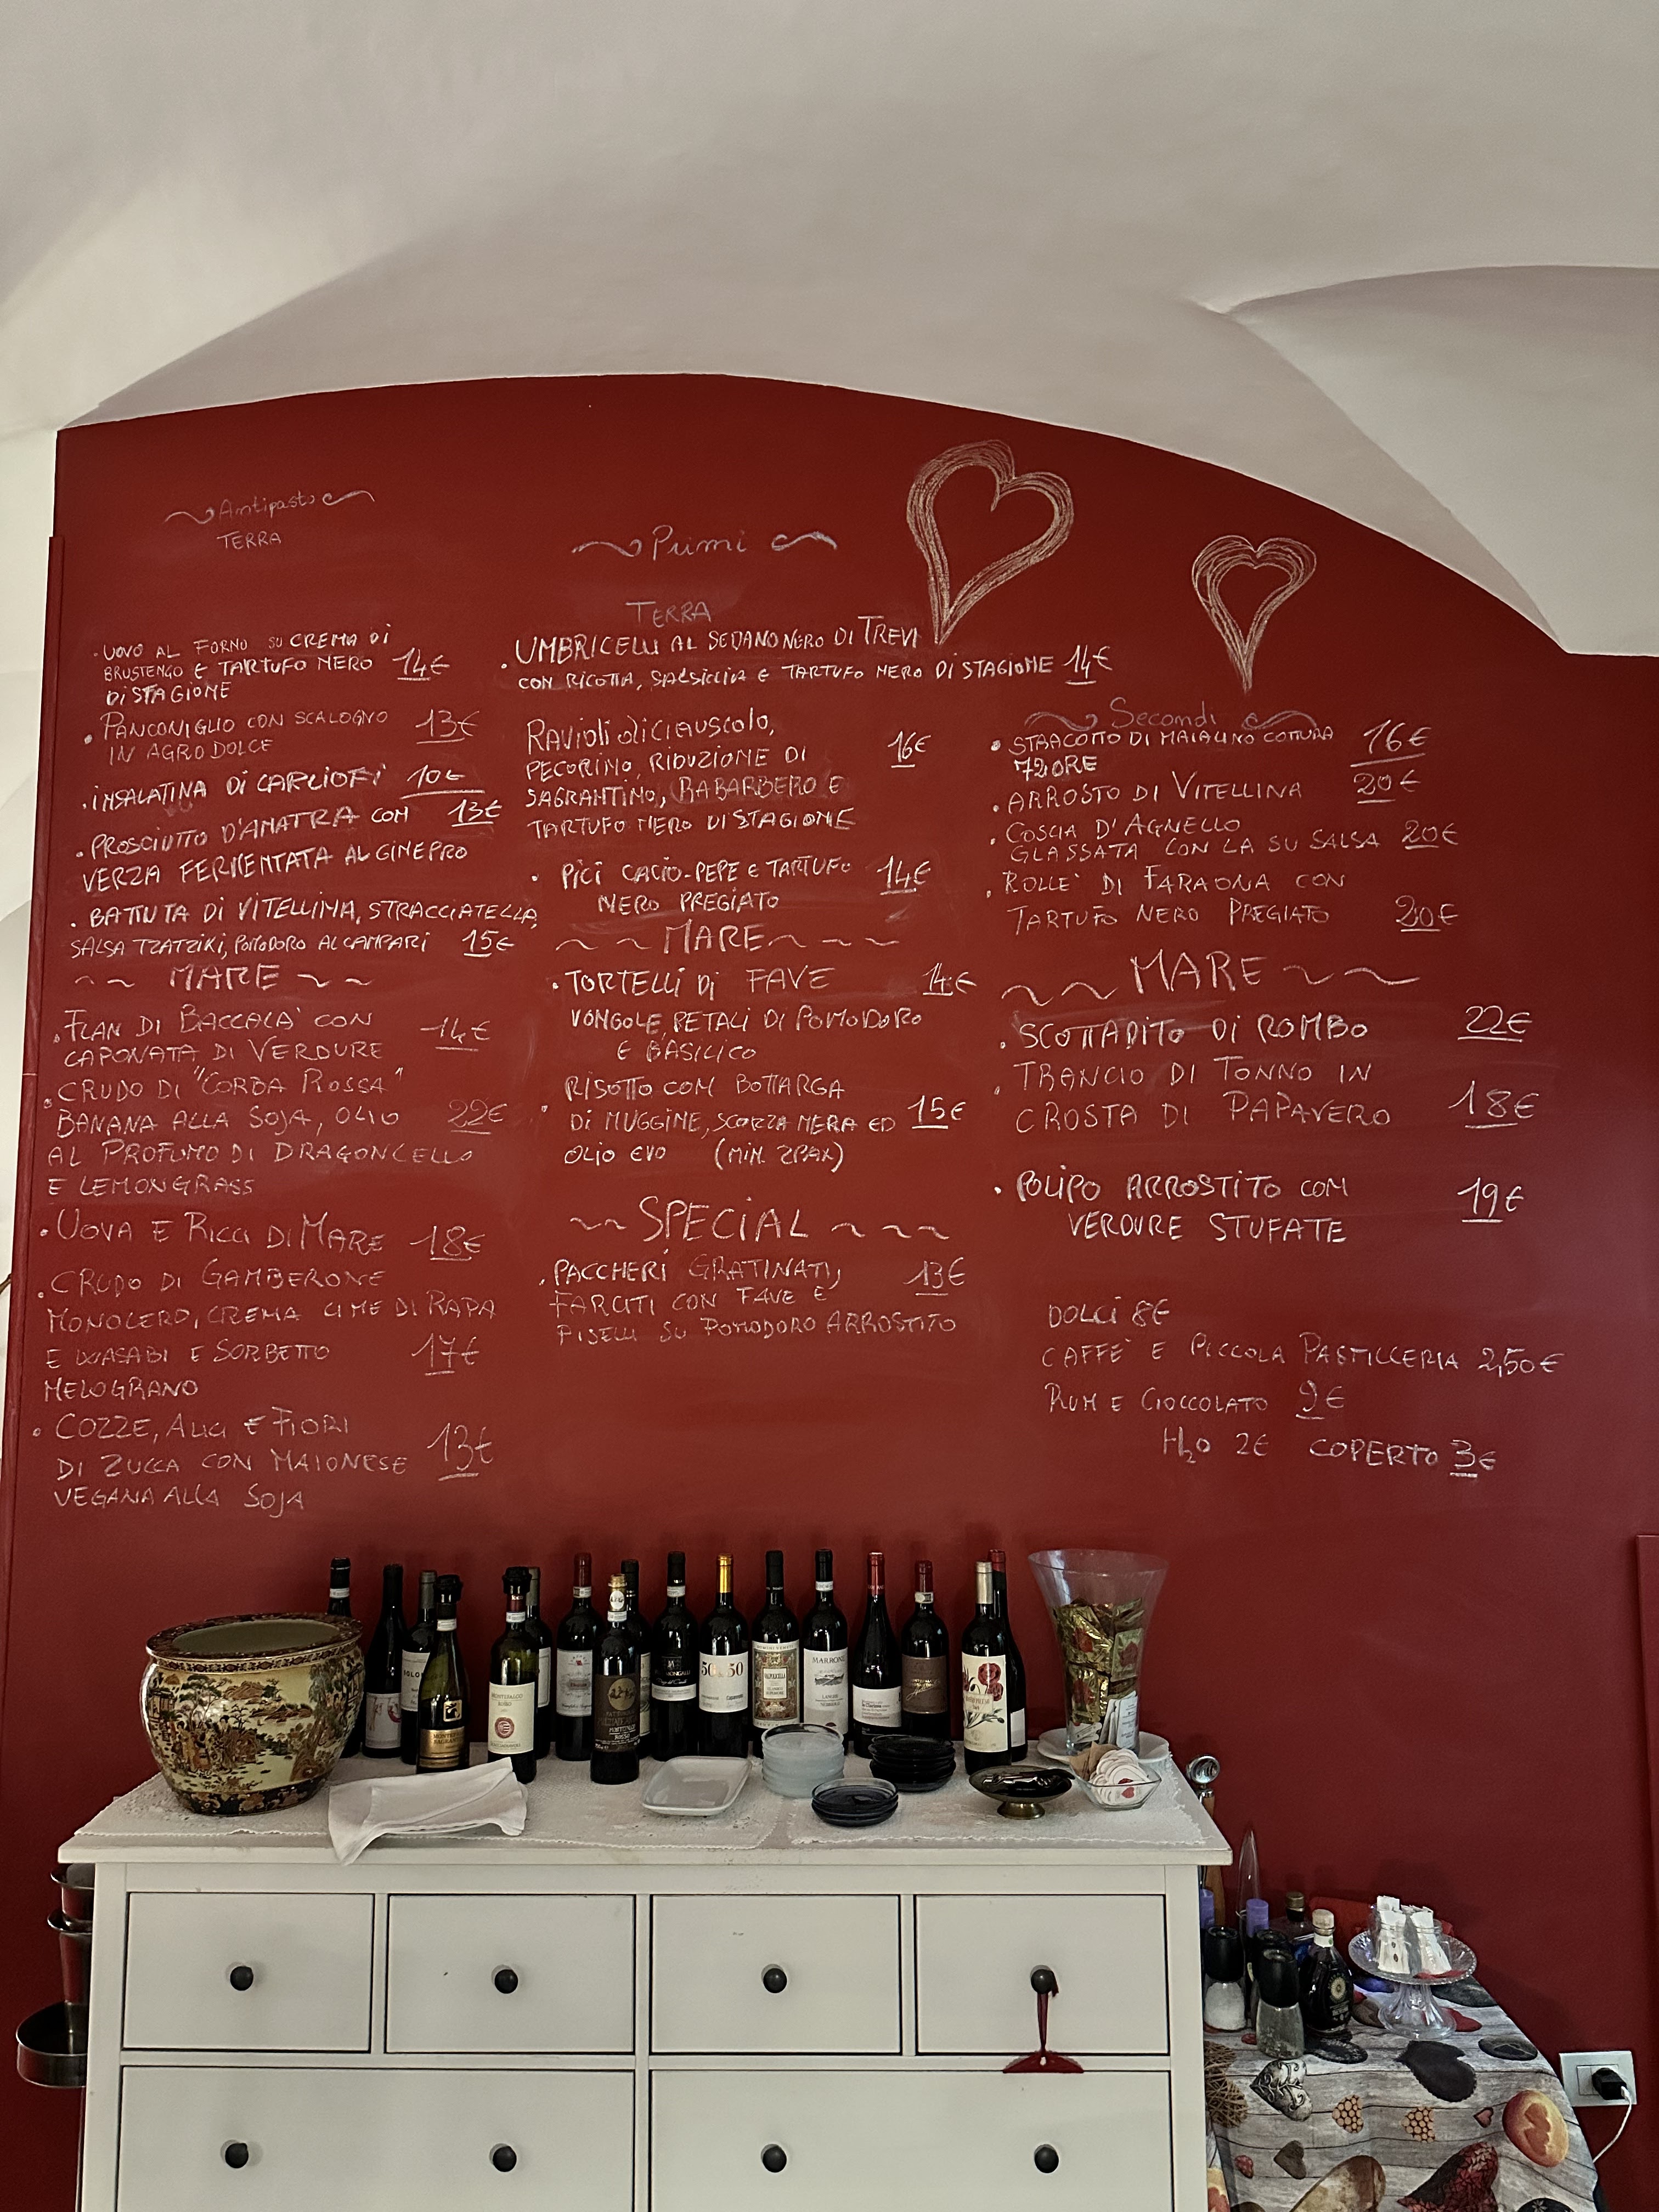 Antipasto
TERRA
UOVO AL FORNO SU CREMA DI
BRUSTENGO E TARTUFO NERO 14€
DI STAGIONE
PANCONIGLIO CON SCALOGNO 13€
IN AGRODOLCE
INSALATINA DI CARCIOFI 10€
PROSCIUTTO D'ANATRA CON 13€
VERZA FERMENTATA AL GINEPRO
BATTUTA DI VITELLINA, STRACCIATELLA,
SALSA TZATZIKI, POMODORO AL CAMPARI 15€
MARE
FLAN DI BACCALA' CON 14€
CAPONATA DI VERDURE
CRUDO DI "CORBA ROSSA"
BANANA ALLA SOJA, OLIO 22€
AL PROFUMO DI DRAGONCELLO
E LEMONGRASS
UOVA E RICCI DI MARE 18€
CRUDO DI GAMBERONE
MONOLERO, CREMA CIME DI RAPA
E WASABI E SORBETTO 17€
MELOGRANO
COZZE, ALICI E FIORI
DI ZUCCA CON MAIONESE 13€
VEGANA ALLA SOJA
Primi
TERRA
UMBRICELLI AL SEDANO NERO DI TREVI
CON RICOTTA, SALSICCIA E TARTUFO NERO DI STAGIONE 14€
RAVIOLI DI CIAUSCOLO,
PECORINO, RIDUZIONE DI 16€
SAGRANTINO, RABARBERO E
TARTUFO NERO DI STAGIONE
PICI CACIO-PEPE E TARTUFO 14€
NERO PREGIATO
MARE
TORTELLI DI FAVE 14€
VONGOLE, PETALI DI POMODORO
E BASILICO
RISOTTO CON BOTTARGA
DI MUGGINE, SCORZA NERA ED 15€
OLIO EVO (MIN. 2PAX)
SPECIAL
PACCHERI GRATINATI, 13€
FARCITI CON FAVE E
PISELLI SU POMODORO ARROSTITO
Secondi
STRACOTTO DI MAIALINO COTTURA 16€
72 ORE
ARROSTO DI VITELLINA 20€
COSCIA D'AGNELLO
GLASSATA CON LA SU SALSA 20€
ROLLE' DI FARAONA CON
TARTUFO NERO PREGIATO 20€
MARE
SCOTTADITO DI ROMBO 22€
TRANCIO DI TONNO IN
CROSTA DI PAPAVERO 18€
POLIPO ARROSTITO CON 19€
VERDURE STUFATE
DOLCI 8€
CAFFE' E PICCOLA PASTICCERIA 2,50€
RUM E CIOCCOLATO 9€
H2O 2€ COPERTO 3€
MONTEFALCO
50&50
MARRONE
LANGHE